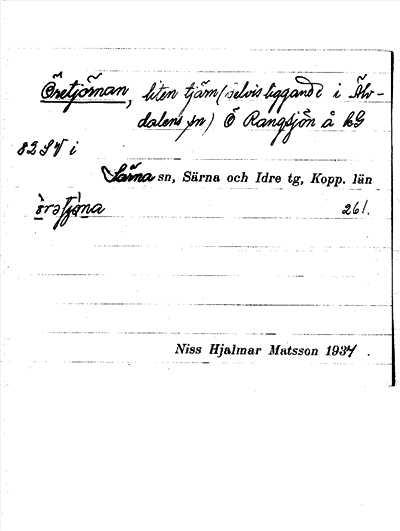 Öretjörnan, liten tjärn (delvis liggande i Älv-
dalens sn) Ö Rangsjön å kG
82SV i
Särna sn, Särna och Idre tg, Kopp. län
261.
Niss Hjalmar Matsson 1934.